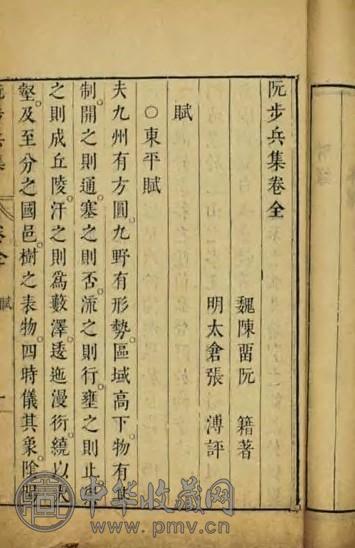 阮步兵集卷全
魏陳畱阮 籍著
明太倉張 溥評
賦
○東平賦
夫九州有方圓。九野有形勢。區域高下。物有其
制。開之則通。塞之則否。派之則行。壅之則止。
之則成丘陵。汙之則爲藪澤。逶迤漫衍。繞以大
壑。及至分之國邑。樹之表物。四時儀其象。陰陽
阮步兵集 卷全 賦 一
中华收藏网
www.pmv.cn